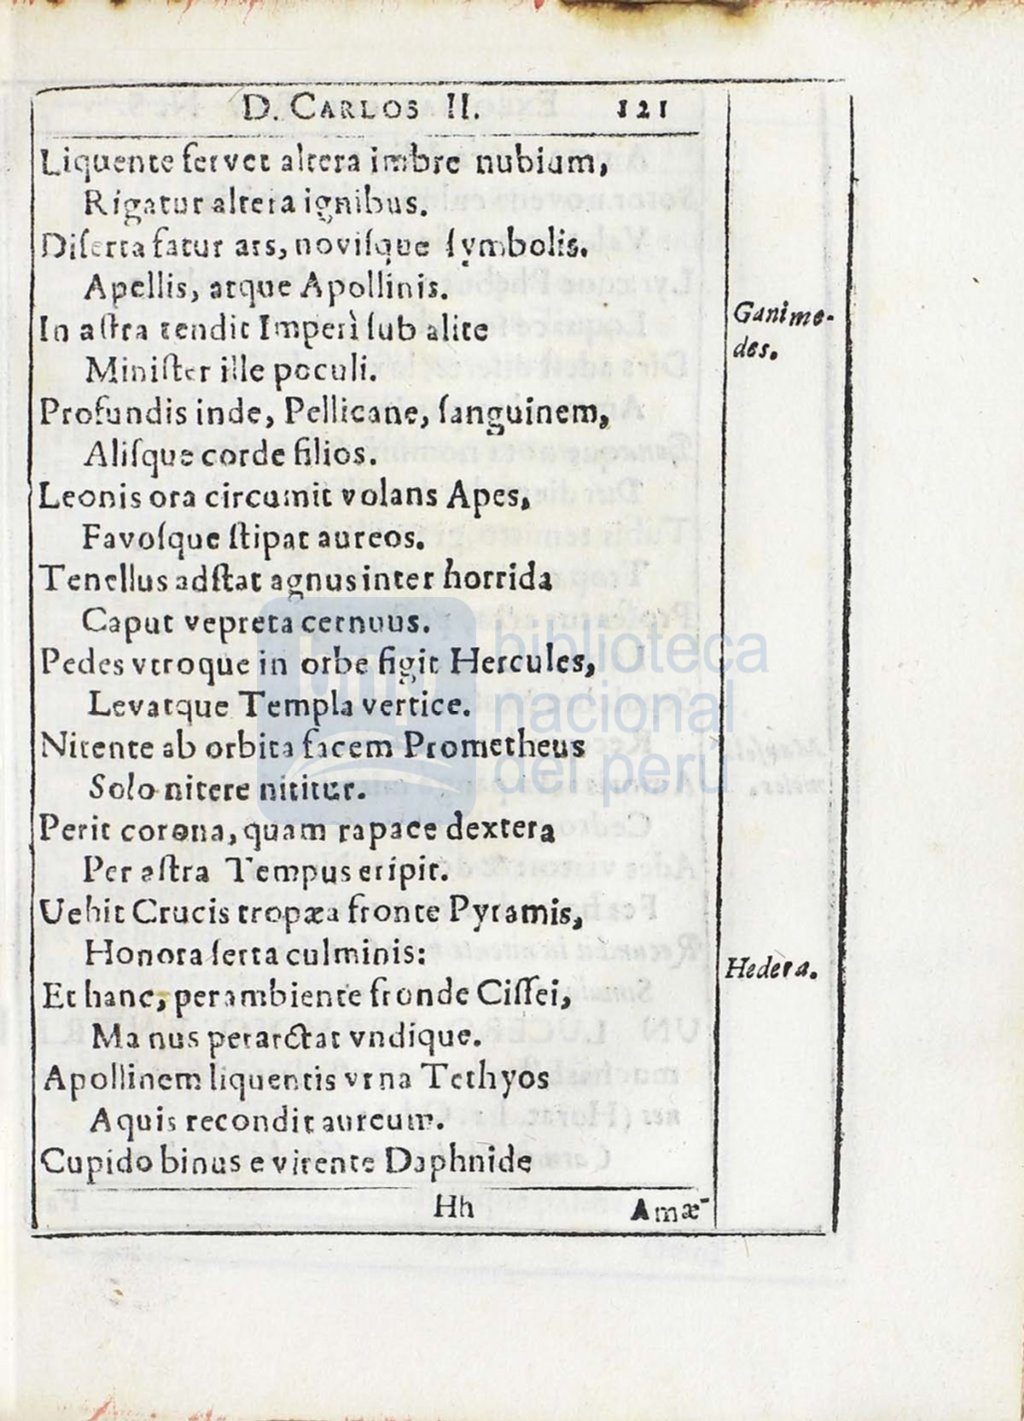 D. CARLOS II. 121
Liquente fervet altera imbre nubium,
Rigatur altera ignibus.
Diſerta fatur ars, noviſque ſymbolis.
Apellis, atque Apollinis.
In aſtra tendit Imperì ſub alite
Miniſter ille poculi.
Profundis inde, Pellicane, ſanguinem,
Aliſque corde filios.
Leonis ora circumit volans Apes,
Favoſque ſtipat aureos.
Tenellus adſtat agnus inter horrida
Caput vepreta cernuus.
Pedes vtroque in orbe figit Hercules,
Levatque Templa vertice.
Nitente ab orbita facem Prometheus
Solo nitere nititur.
Perit corona, quam rapace dextera
Per aſtra Tempus eripit.
Uehit Crucis tropæa fronte Pyramis,
Honora ſerta culminis:
Et hanc, perambiente fronde Ciſſei,
Ma nus perarctat vndique.
Apollinem liquentis vrna Tethyos
Aquis recondit aureum.
Cupido binus e virente Daphnide
Hh Amæ-
Ganime-
des.
Hedera.
biblioteca
nacional
del perú